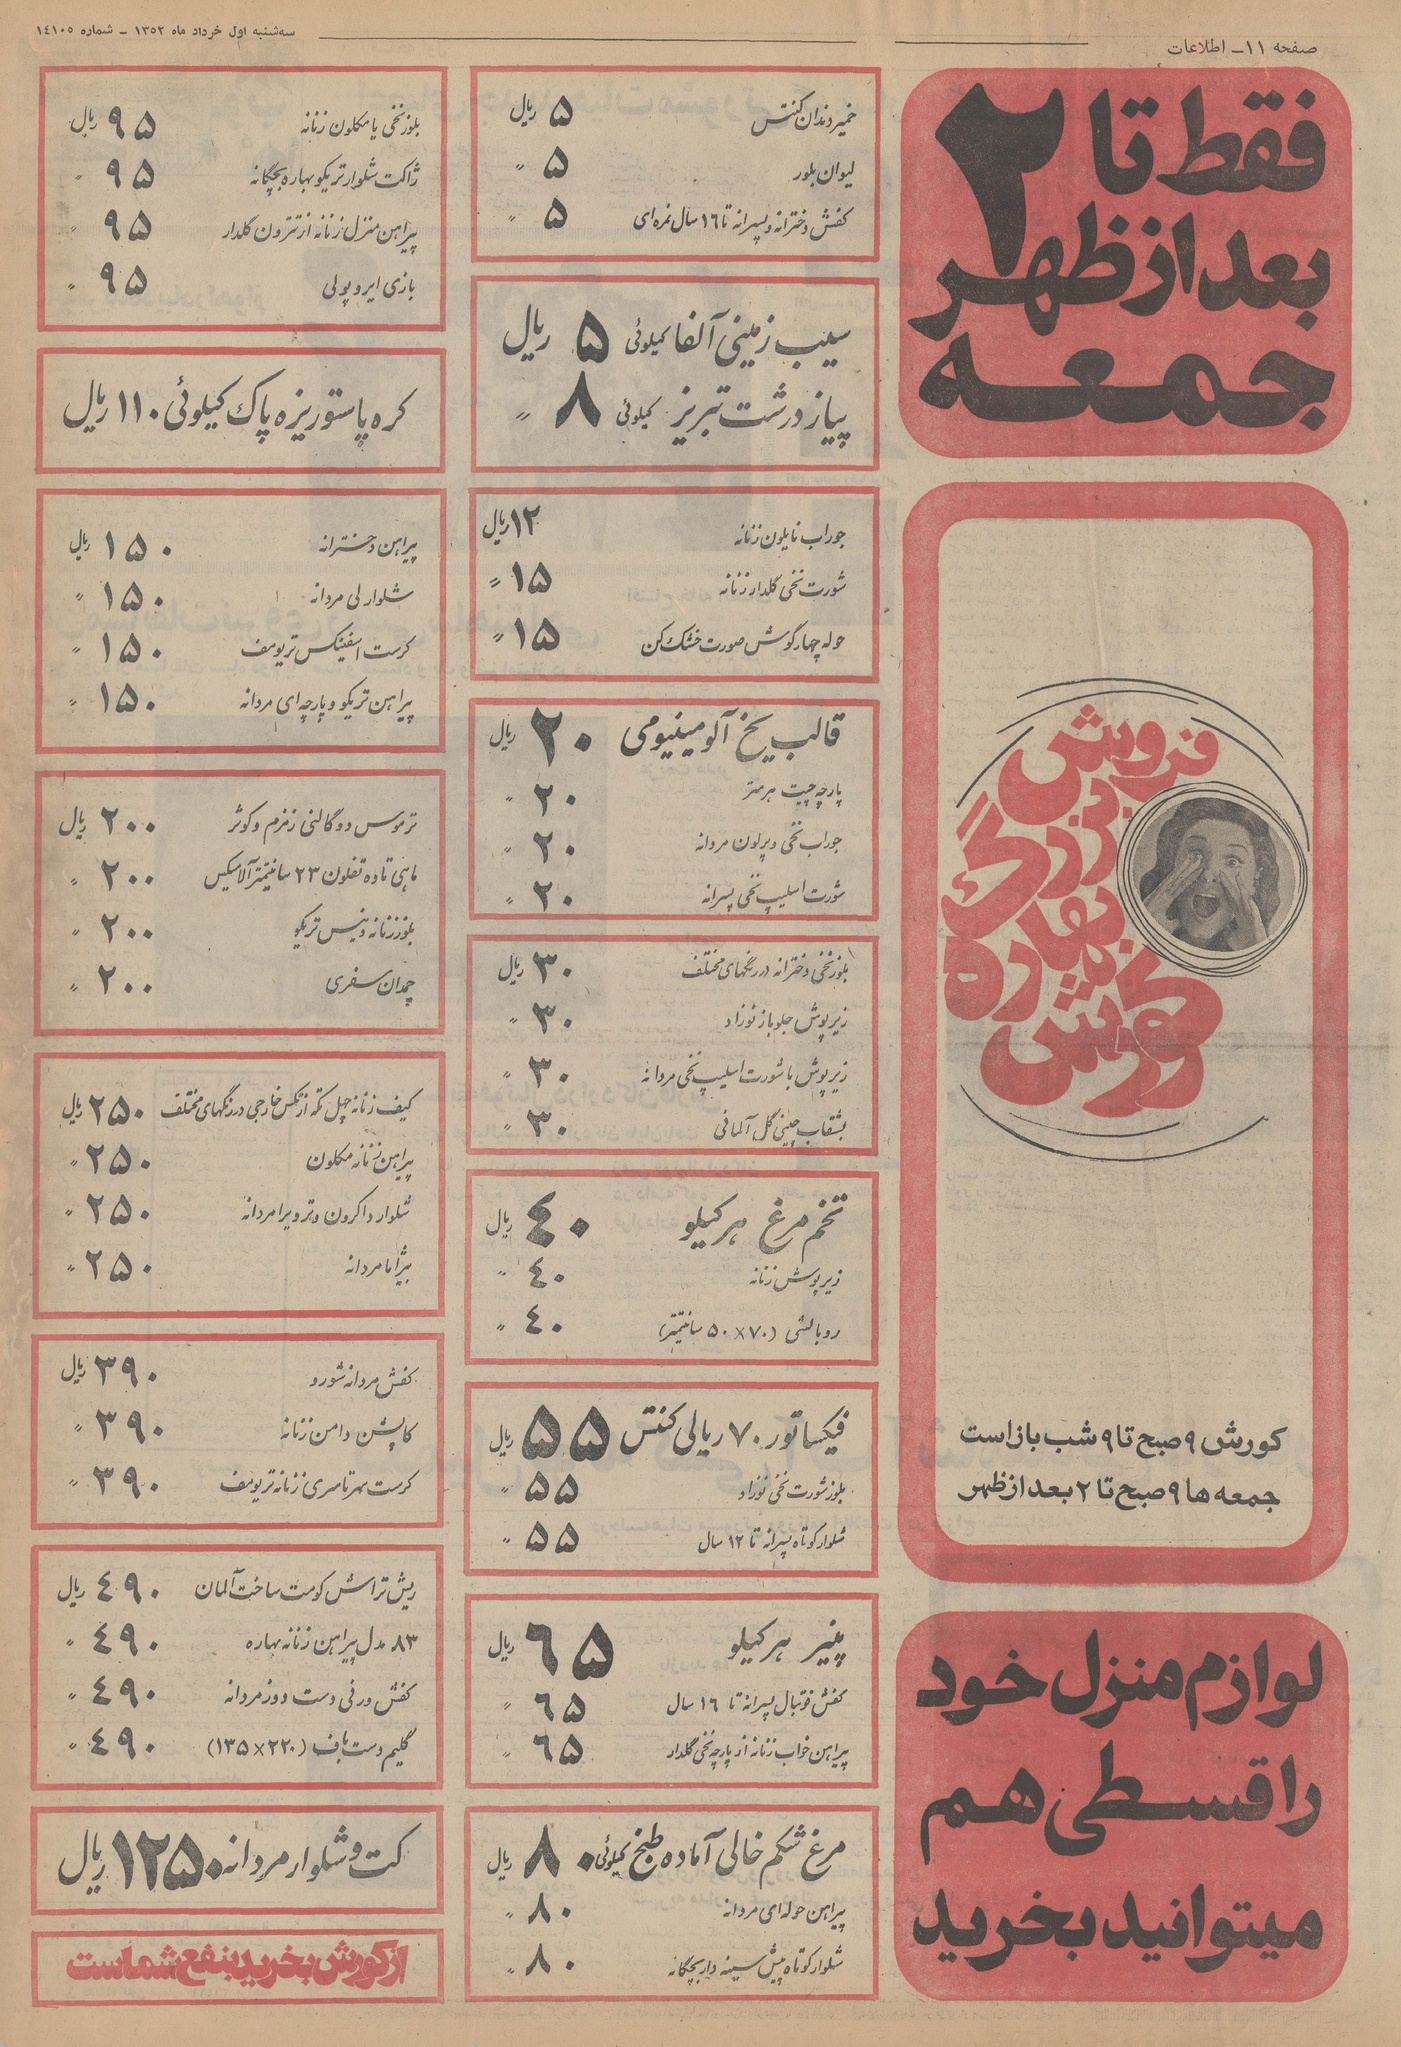 صفحه ۱۱ـ اطلاعات
سه‌شنبه اول خرداد ماه ۱۳۵۲ ـ شماره ۱۴۱۰۵
فقط تا ۲
بعد از ظهر
جمعه
فروش
بزرگ
بهاره
کورش
کورش ۹ صبح تا ۹ شب باز است
جمعه ها ۹ صبح تا ۲ بعد از ظهر
لوازم منزل خود
را قسطی هم
میتوانید بخرید
خمیر دندان کنتس ۵ ریال
لیوان بلور ۵ «
کفش دخترانه و پسرانه تا ۱۶ سال نمره‌ای ۵ «
سیب زمینی آلفا کیلوئی ۵ ریال
پیاز درشت تبریز کیلوئی ۸ «
جوراب نایلون زنانه ۱۲ ریال
شورت نخی گلدار زنانه ۱۵ «
حوله چهارگوش صورت خشک کن ۱۵ «
قالب یخ آلومینیومی ۲۰ ریال
پارچه چیت هر متر ۲۰ «
جوراب نخی و پرلون مردانه ۲۰ «
شورت اسلیپ نخی پسرانه ۲۰ «
بلوز نخی دخترانه در رنگهای مختلف ۳۰ ریال
زیرپوش جلو باز نوزاد ۳۰ «
زیرپوش با شورت اسلیپ نخی مردانه ۳۰ «
بشقاب چینی گل آلمانی ۳۰ «
تخم مرغ هر کیلو ۴۰ ریال
زیرپوش زنانه ۴۰ «
روبالشی (۷۰×۵۰ سانتیمتر) ۴۰ «
فیکساتور ۷۰ ریالی کنتس ۵۵ ریال
بلوز شورت نخی نوزاد ۵۵ «
شلوار کوتاه پسرانه تا ۱۲ سال ۵۵ «
پنیر هر کیلو ۶۵ ریال
کفش فوتبال پسرانه تا ۱۶ سال ۶۵ «
پیراهن خواب زنانه از پارچه نخی گلدار ۶۵ «
مرغ شکم خالی آماده طبخ کیلوئی ۸۰ ریال
پیراهن حوله‌ای مردانه ۸۰ «
شلوار کوتاه پیش سینه دار بچگانه ۸۰ «
بلوز نخی یا مکلون زنانه ۹۵ ریال
ژاکت شلوار تریکو بهاره بچگانه ۹۵ «
پیراهن منزل زنانه از تترون گلدار ۹۵ «
بازی ایروپولی ۹۵ «
کره پاستوریزه پاک کیلوئی ۱۱۰ ریال
پیراهن دخترانه ۱۵۰ ریال
شلوار لی مردانه ۱۵۰ «
کرست اسفینکس تریومف ۱۵۰ «
پیراهن تریکو و پارچه‌ای مردانه ۱۵۰ «
ترموس دو گالنی زمزم و کوثر ۲۰۰ ریال
ماهی تاده تفلون ۲۳ سانتیمتر آلامیکس ۲۰۰ «
بلوز زنانه ونیس تریکو ۲۰۰ «
چمدان سفری ۲۰۰ «
کیف زنانه چهل تکه از جکس خارجی در رنگهای مختلف ۲۵۰ ریال
پیراهن زنانه مکلون ۲۵۰ «
شلوار داکرون و ترویرا مردانه ۲۵۰ «
پیژاما مردانه ۲۵۰ «
کفش مردانه شورو ۳۹۰ ریال
کاپشن دامن زنانه ۳۹۰ «
کرست سرتاسری زنانه تریومف ۳۹۰ «
ریش تراش کومت ساخت آلمان ۴۹۰ ریال
۸۳ مدل پیراهن زنانه بهاره ۴۹۰ «
کفش ورنی دست دوز مردانه ۴۹۰ «
گلیم دست باف (۲۲۰×۱۳۵) ۴۹۰ «
کت و شلوار مردانه ۱۲۵۰ ریال
از کورش بخرید بنفع شماست